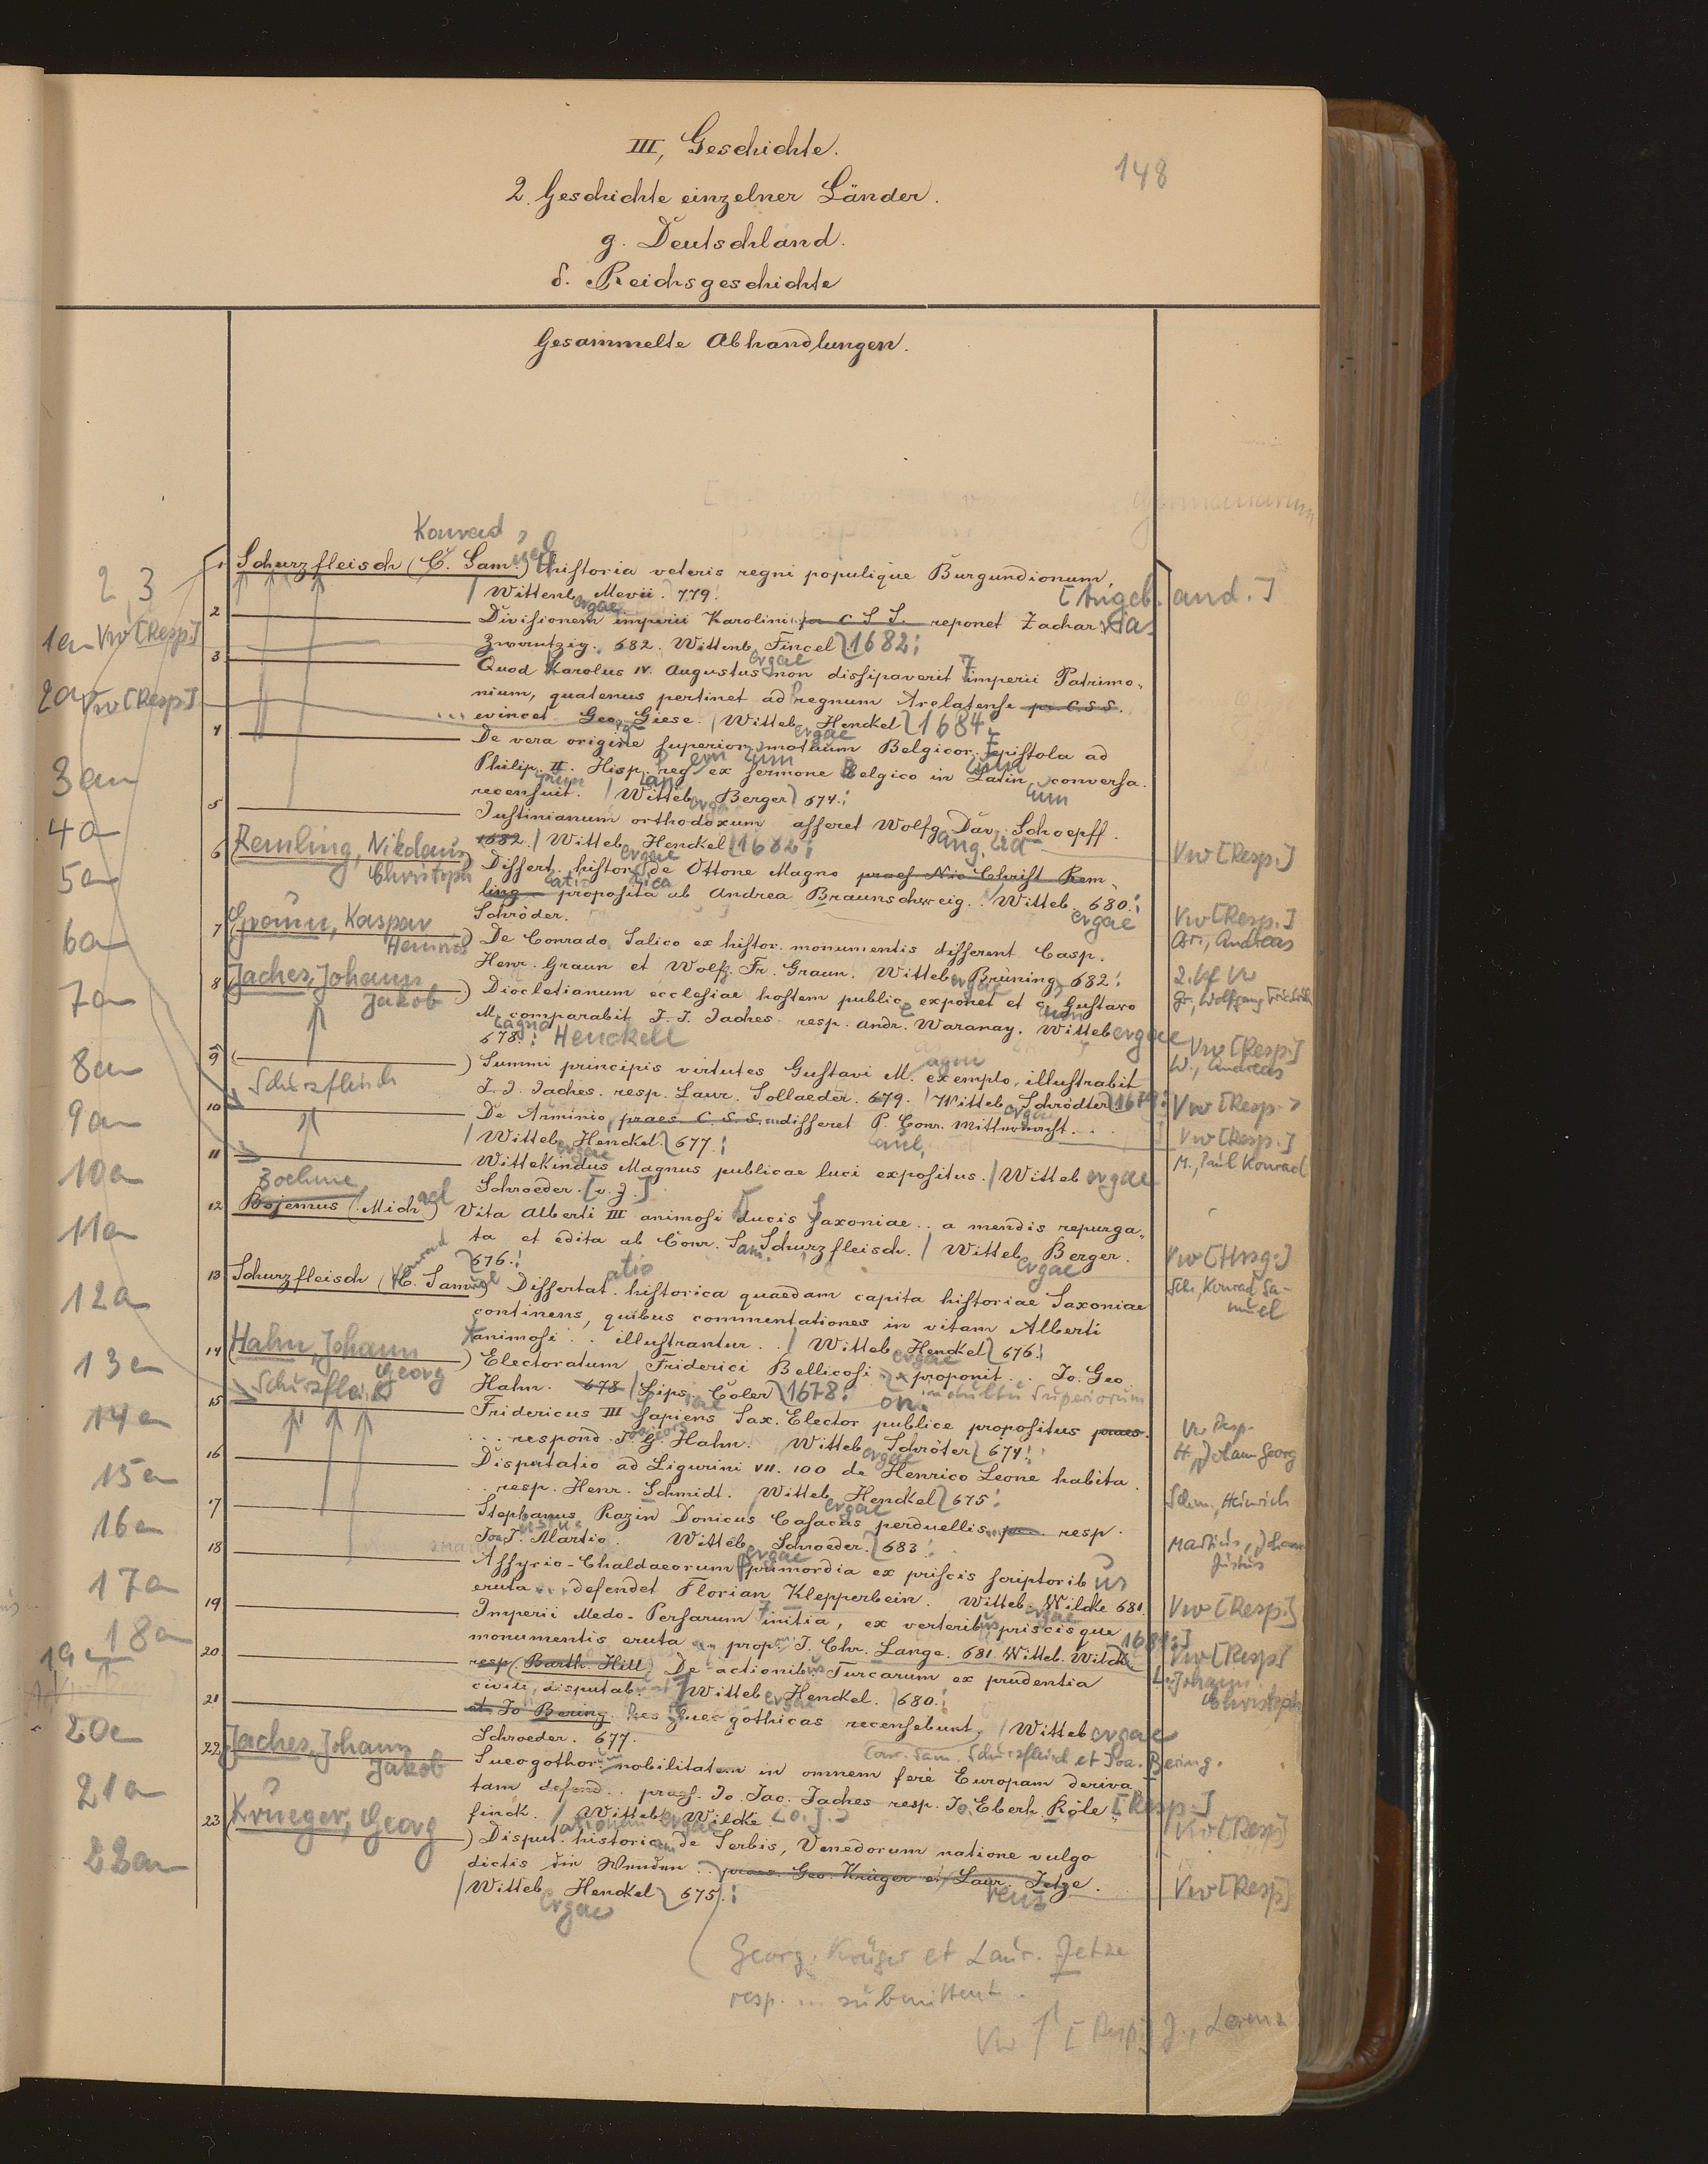 III, Geschichte.
148
2. Geschichte einzelner Länder.
g. Deutschland.
δ. Reichsgeschichte
Gesammelte Abhandlungen.
Konrad
1 Schurzfleisch (C. Sam.uel) Historia veteris regni populique Burgundionum,
Wittenb. Mevii. 779. [Angeb. and.]
2 Divisionem imperii Karolini pr. C S S. reponet Zachar ias
Zwantzig. 682. Wittenb. Fincel 1682
3 Quod Karolus IV. Augustus non dissipaverit imperii Patrimo-
nium, quatenus pertinet ad regnum Arelatense pr. C.S.S.
evincet Geo. Giese. Witteb. Henckel 1684
4 De vera origine superiorum motuum Belgicor. Epistola ad
Philip. II. Hisp. reg. ex sermone Belgico in Latin. conversa.
recensuit. Witteb. Berger 674.
5 Justinianum orthodoxum asseret Wolfg. Dav. Schoepff.
1682. Witteb. Henckel 1682
6 Remling, Nikolaus Christoph) Dissert. histor. de Ottone Magno praes. Nic. Christ. Rem-
ling proposita ab Andrea Braunschweig. Witteb. 680.
Schröder.
7 Graun, Kaspar Heinrich) De Conrado Salico ex histor. monumentis disserent Casp.
Henr. Graun et Wolfg. Fr. Graun. Witteb. Brüning 682.
8 Jaches, Johann Jakob) Diocletianum ecclesiae hostem public. exponet et c. Gustavo
M. comparabit J. J. Jaches resp. Andr. Waranay. Witteb ergae
678. Henckell
9 Summi principis virtutes Gustavi M. exemplo, illustrabit
J. J. Jaches. resp. Laur. Sollaeder. 679. Witteb. Schrödter 1679
Schurzfleisch
10 De Arminio, praes. C. S. S. disseret P. Conr. Mitternacht.
Witteb. Henckel. 677.
11 Wittekindus Magnus publicae luci expositus. Witteb ergae
Schroeder. [o. J.]
Boehme
12 Bojemus (Mich ael) Vita Alberti III animosi ducis Saxoniae .. a mendis repurga-
ta et edita ab Conr. Sam. Schurzfleisch. Witteb. Berger.
676.
13 Schurzfleisch (C. Samuel) Dissertat. historica quaedam capita historiae Saxoniae
continens, quibus commentationes in vitam Alberti
animosi .. illustrantur. Witteb. Henckel 676.
14 Hahn, Johann Georg) Electoratum Friderici Bellicosi proponit .. Jo. Geo.
Hahn. 678 Lips. Coler 1678
Schurzfleisch
15 Fridericus III Sapiens Sax. Elector publice propositus praes.
respond. J. G. Hahn. Witteb. Schröter 674.
16 Disputatio ad Ligurini VII. 100 de Henrico Leone habita.
resp. Henr. Schmidt. Witteb. Henckel 675.
17 Stephanus Razin Donicus Casacus perduellis resp.
Joa. J. Martio. Witteb. Schroeder. 683.
18 Assyrio-Chaldaeorum primordia ex priscis scriptorib us
eruta defendet Florian Klepperbein. Witteb. Wilcke 681.
19 Imperii Medo-Persarum initia, ex veteribus priscisque
monumentis eruta prop. J. Chr. Lange. 681. Witteb. Wilcke 1681
20 resp. Barth. Hill De actionibus Turcarum ex prudentia
civili, disputab. Witteb Henckel. 680.
21 et Jo Bering. Res Sueogothicas recensebunt, Witteb ergae
Schroeder. 677.
Conr. Sam. Schurzfleisch et Joa. Bering.
22 Jaches, Johann Jakob Sueogothor. nobilitatem in omnem fere Europam deriva-
tam defend. praes. Jo. Jac. Jaches resp. Jo. Eberh. Röle- [Resp.]
finck. Witteb. Wilcke [o. J.]
23 Krüeger, Georg) Disput. historica de Serbis, Venedorum natione vulgo
dictis die Wenden .. praes. Geo. Krüger et Laur. Jetze.
Witteb. Henckel 675.
Georg. Krüger et Laur. Jetze
resp. ... submittent.
Vw [Resp.] J., Lorenz
2 3
1a Vw [Resp.]
2a Vw [Resp.]
3a
4a
5a
6a
7a
8a
9a
10a
11a
12a
13a
14a
15a
16a
17a
18a
19a
20a
21a
22a
Vw [Resp.]
Vw [Resp.]
Br., Andreas
2. Vf Vw
Gr., Wolfgang Friedrich
Vw [Resp.]
W., Andreas
Vw [Resp.]
Vw [Resp.]
M., Paul Konrad
Vw [Hrsg.]
Sch., Konrad Sa-
muel
Vw Resp.
H., Johann Georg
Schm., Heinrich
Martius, Johann
Justus
Vw [Resp.]
Vw [Resp]
L. Johann
Christoph
Vw [Resp]
Vw [Resp]